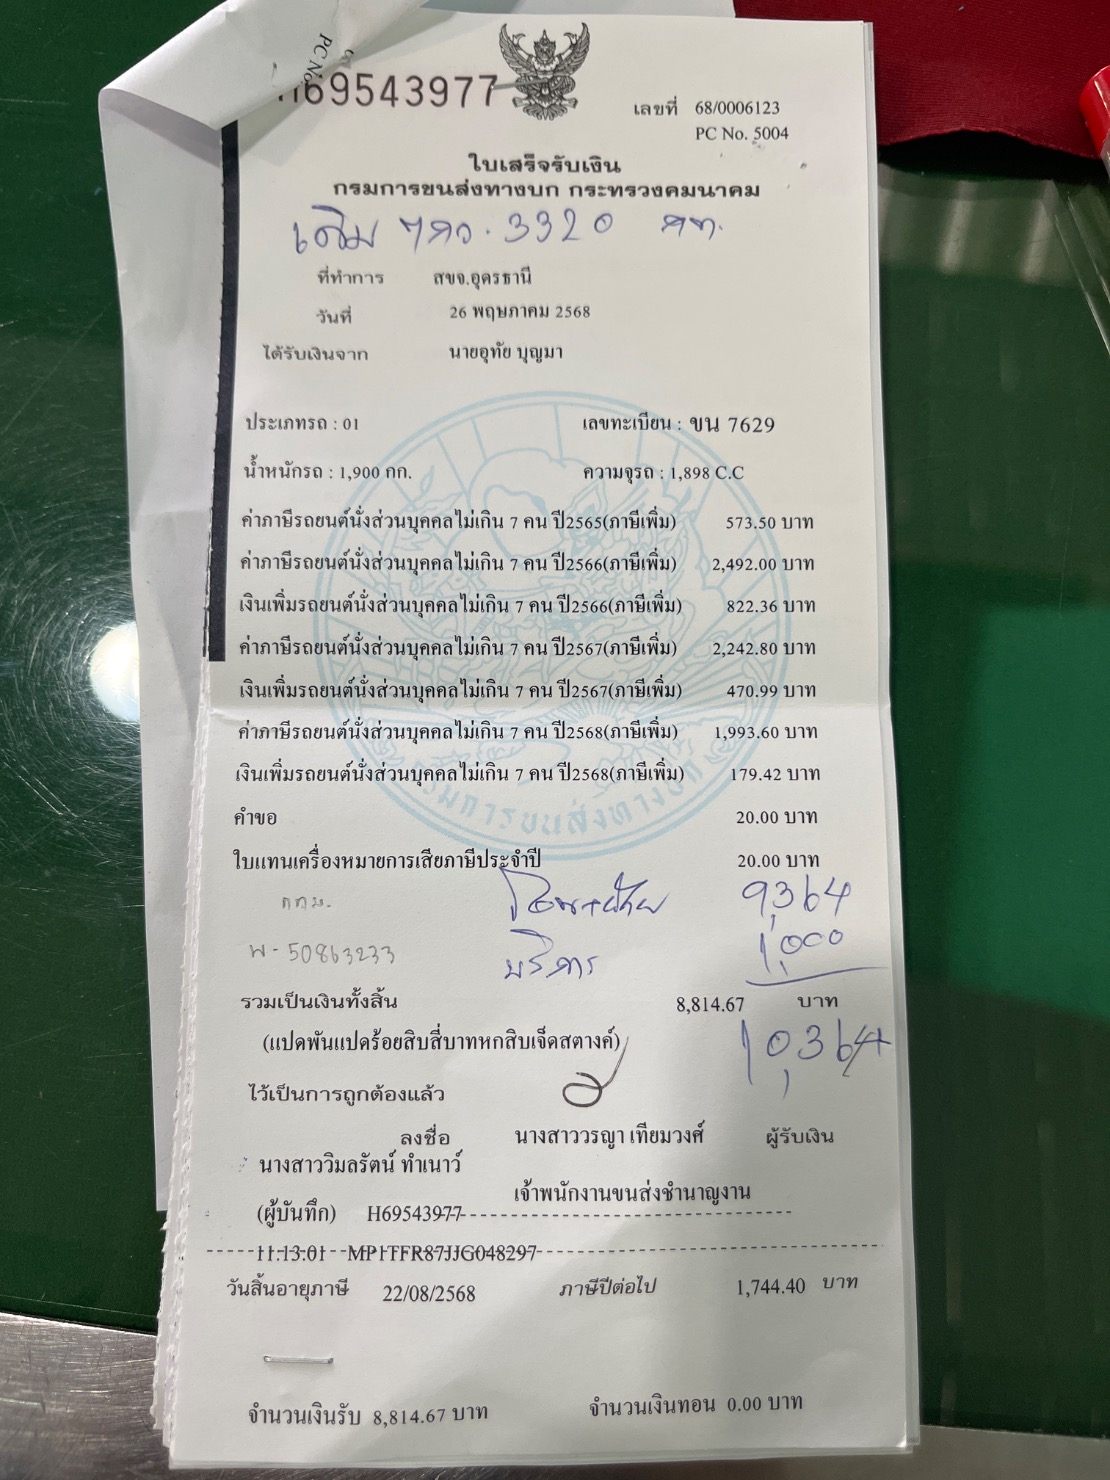 PC No.
69543977
เลขที่ 68/0006123
PC No. 5004
ใบเสร็จรับเงิน
กรมการขนส่งทางบก กระทรวงคมนาคม
เดิม 3320 กท.
ที่ทำการ สขจ.อุดรธานี
วันที่ 26 พฤษภาคม 2568
ได้รับเงินจาก นายอุทัย บุญมา
ประเภทรถ : 01 เลขทะเบียน : ขน 7629
น้ำหนักรถ : 1,900 กก. ความจุรถ : 1,898 C.C
ค่าภาษีรถยนต์นั่งส่วนบุคคลไม่เกิน 7 คน ปี2565(ภาษีเพิ่ม) 573.50 บาท
ค่าภาษีรถยนต์นั่งส่วนบุคคลไม่เกิน 7 คน ปี2566(ภาษีเพิ่ม) 2,492.00 บาท
เงินเพิ่มรถยนต์นั่งส่วนบุคคลไม่เกิน 7 คน ปี2566(ภาษีเพิ่ม) 822.36 บาท
ค่าภาษีรถยนต์นั่งส่วนบุคคลไม่เกิน 7 คน ปี2567(ภาษีเพิ่ม) 2,242.80 บาท
เงินเพิ่มรถยนต์นั่งส่วนบุคคลไม่เกิน 7 คน ปี2567(ภาษีเพิ่ม) 470.99 บาท
ค่าภาษีรถยนต์นั่งส่วนบุคคลไม่เกิน 7 คน ปี2568(ภาษีเพิ่ม) 1,993.60 บาท
เงินเพิ่มรถยนต์นั่งส่วนบุคคลไม่เกิน 7 คน ปี2568(ภาษีเพิ่ม) 179.42 บาท
กรมการขนส่งทางบก
คำขอ 20.00 บาท
ใบแทนเครื่องหมายการเสียภาษีประจำปี 20.00 บาท
กทม. 9,364
พ - 50863233 บริการ 1,000
รวมเป็นเงินทั้งสิ้น 8,814.67 บาท
(แปดพันแปดร้อยสิบสี่บาทหกสิบเจ็ดสตางค์) 10,364
ไว้เป็นการถูกต้องแล้ว
ลงชื่อ นางสาววรญา เทียมวงศ์ ผู้รับเงิน
นางสาววิมลรัตน์ ทำเนาว์
เจ้าพนักงานขนส่งชำนาญงาน
(ผู้บันทึก) H69543977
11:13:01 MP1TFR87JJG048297
วันสิ้นอายุภาษี 22/08/2568 ภาษีปีต่อไป 1,744.40 บาท
จำนวนเงินรับ 8,814.67 บาท จำนวนเงินทอน 0.00 บาท